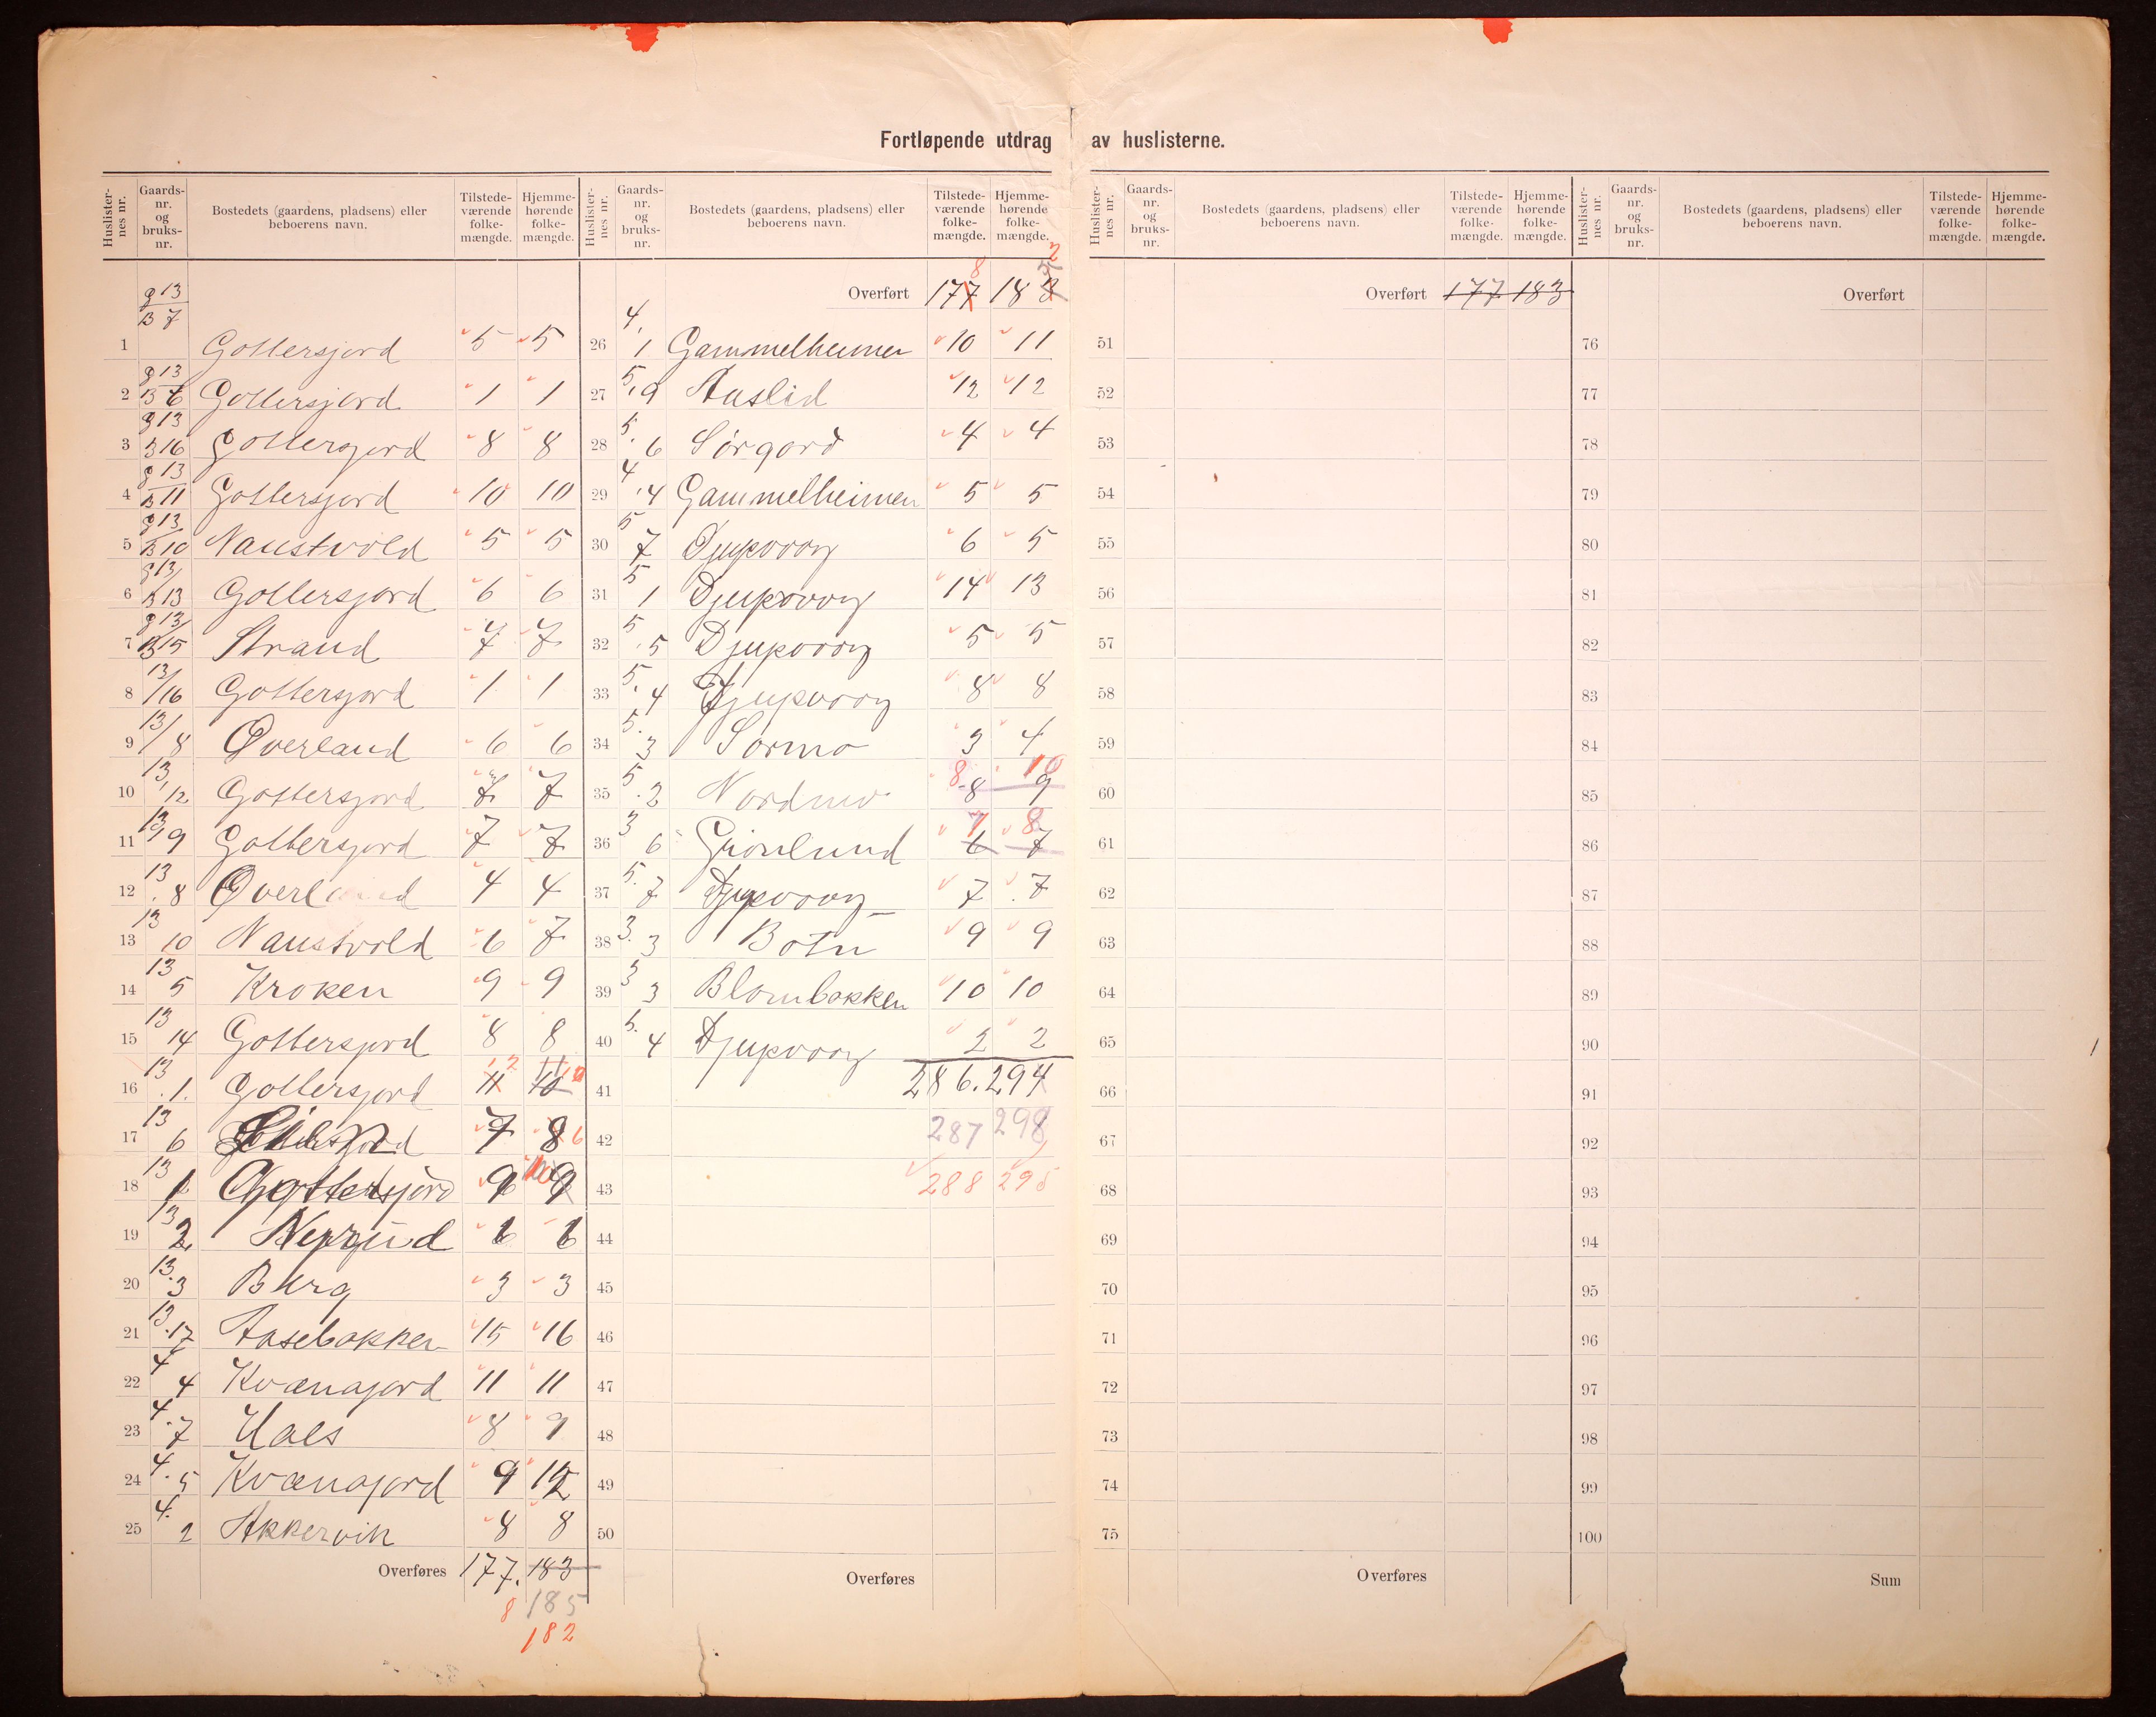 Fortløpende utdrag av huslisterne.
Huslisternes nr. Gaardsnr. og bruksnr. Bostedets (gaardens, pladsens) eller beboerens navn. Tilstedeværende folkemængde. Hjemmehørende folkemængde.
g 13
B 7
1 Gottersjord 5 5
g 13
2 B 6 Gottersjord 1 1
g 13
3 B 16 Gottersjord 8 8
g 13
4 B 11 Gottersjord 10 10
g 13
5 B 10 Naustvold 5 5
g 13
6 B 13 Gottersjord 6 6
g 13
7 B 15 Strand 7 7
8 13/16 Gottersjord 1 1
9 13/8 Overland 6 6
10 13, 12 Gottersjord 7 7
11 13, 9 Gottersjord 7 7
12 13. 8 Overland 4 4
13 13 10 Naustvold 6 7
14 13 5 Kroken 9 9
15 13 14 Gottersjord 8 8
16 13 .1. Gottersjord 11 12 10 11
17 13 6 7 8 6
18 13 1 Gottersjord 9 10 9
19 13 2 6 6
20 13. 3 Berg 3 3
21 13. 17 Aasebakken 15 16
22 4 4 Kvænajord 11 11
23 4. 7 Hals 8 9
24 4. 5 Kvænajord 9 12
25 4. 2 Akkervik 8 8
Overføres 177. 183
8 185
182
Huslisternes nr. Gaardsnr. og bruksnr. Bostedets (gaardens, pladsens) eller beboerens navn. Tilstedeværende folkemængde. Hjemmehørende folkemængde.
8 2
Overført 177 183
26 4, 1 Gammelheimen 10 11
27 5, 9 Aaslid 12 12
28 5. 6 Sørgård 4 4
29 4 .4 Gammelheimen 5 5
30 5 7 Djupvaag 6 5
31 5 1 Djupvaag 14 13
32 5 .5 Djupvaag 5 5
33 5. 4 Djupvaag 8 8
34 5. 3 Sørmo 3 4
35 5 .2 Nordmo 8 8 10 9
36 3 6 Grønlund 7 6 8 7
37 5. 7 Djupvaag 7 7
38 3. 3 Botn 9 9
39 3 3 Blombakken 10 10
40 5. 4 Djupvaag 2 2
41 286. 294
42 287 298
43 288 295
44
45
46
47
48
49
50
Overføres
Huslisternes nr. Gaardsnr. og bruksnr. Bostedets (gaardens, pladsens) eller beboerens navn. Tilstedeværende folkemængde. Hjemmehørende folkemængde.
Overført 177 183
51
52
53
54
55
56
57
58
59
60
61
62
63
64
65
66
67
68
69
70
71
72
73
74
75
Overføres
Huslisternes nr. Gaardsnr. og bruksnr. Bostedets (gaardens, pladsens) eller beboerens navn. Tilstedeværende folkemængde. Hjemmehørende folkemængde.
Overført
76
77
78
79
80
81
82
83
84
85
86
87
88
89
90
91
92
93
94
95
96
97
98
99
100
Sum